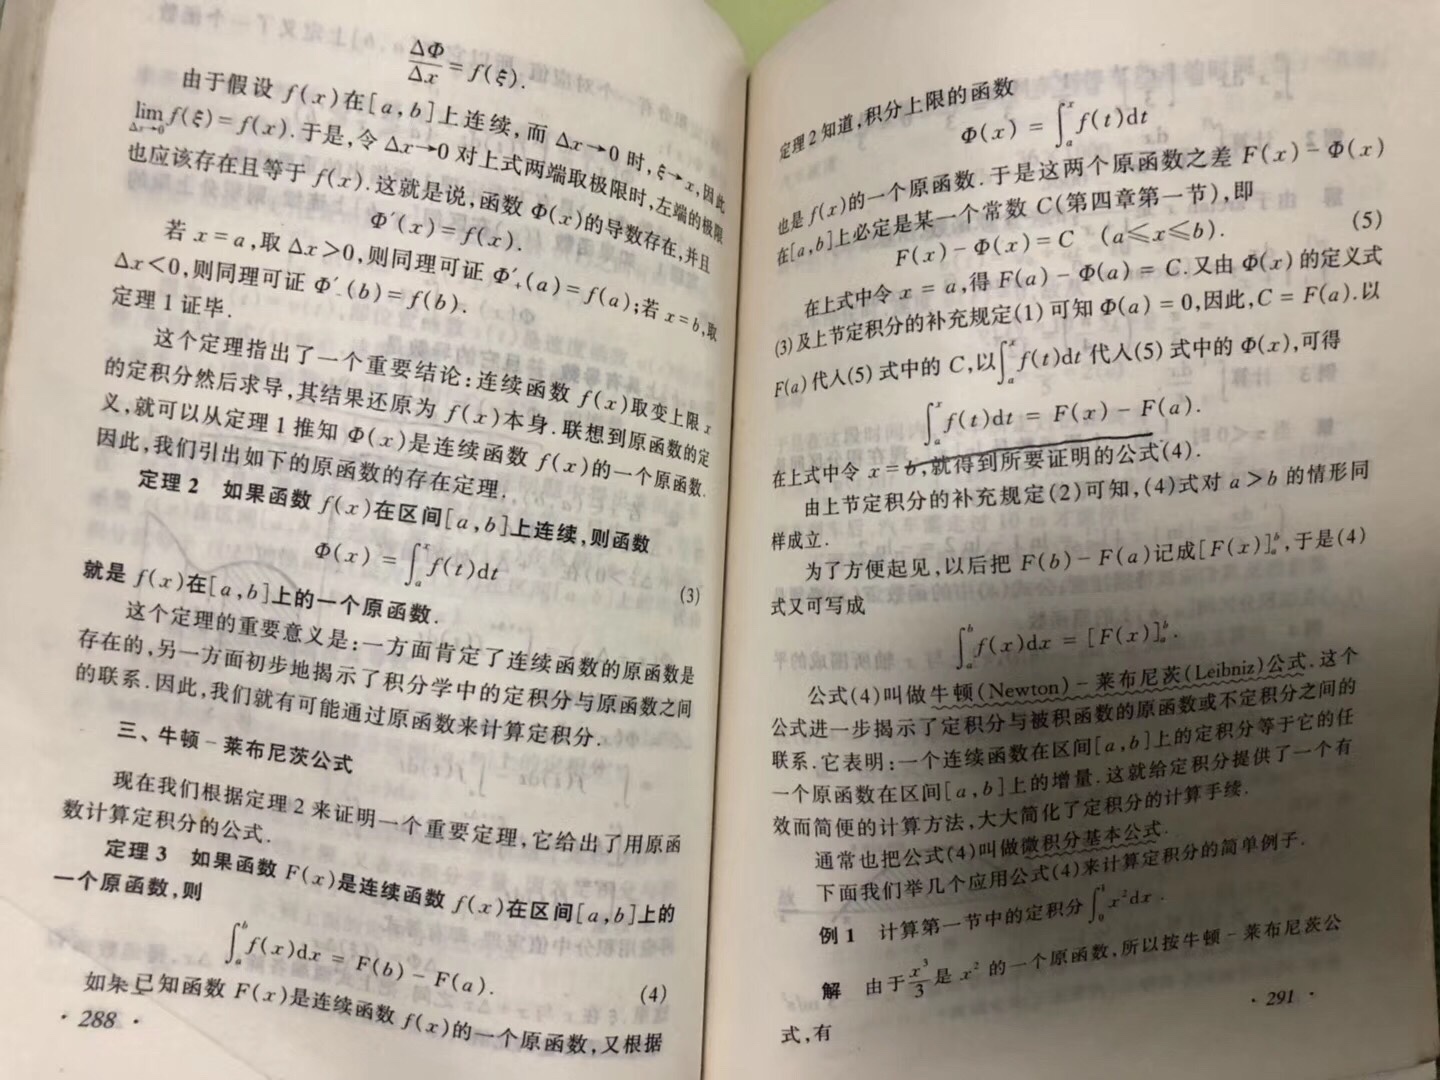 ΔΦ/Δx = f(ξ).
由于假设 f(x)在[a,b]上连续,而 Δx→0 时,ξ→x,因此
lim_{Δx→0} f(ξ)=f(x).于是,令 Δx→0 对上式两端取极限时,左端的极限
也应该存在且等于 f(x).这就是说,函数 Φ(x)的导数存在,并且
Φ′(x)=f(x).
若 x=a,取 Δx>0,则同理可证 Φ′₊(a)=f(a);若 x=b,取
Δx<0,则同理可证 Φ′₋(b)=f(b).
定理 1 证毕.
这个定理指出了一个重要结论:连续函数 f(x)取变上限 x
的定积分然后求导,其结果还原为 f(x)本身.联想到原函数的定
义,就可以从定理 1 推知 Φ(x)是连续函数 f(x)的一个原函数.
因此,我们引出如下的原函数的存在定理.
定理 2 如果函数 f(x)在区间[a,b]上连续,则函数
Φ(x) = ∫_a^x f(t)dt (3)
就是 f(x)在[a,b]上的一个原函数.
这个定理的重要意义是:一方面肯定了连续函数的原函数是
存在的,另一方面初步地揭示了积分学中的定积分与原函数之间
的联系.因此,我们就有可能通过原函数来计算定积分.
三、牛顿-莱布尼茨公式
现在我们根据定理 2 来证明一个重要定理,它给出了用原函
数计算定积分的公式.
定理 3 如果函数 F(x)是连续函数 f(x)在区间[a,b]上的
一个原函数,则
∫_a^b f(x)dx = F(b) - F(a). (4)
如果已知函数 F(x)是连续函数 f(x)的一个原函数,又根据
· 288 ·
定理 2 知道,积分上限的函数
Φ(x) = ∫_a^x f(t)dt
也是 f(x)的一个原函数.于是这两个原函数之差 F(x)-Φ(x)
在[a,b]上必定是某一个常数 C(第四章第一节),即
F(x)-Φ(x)=C (a≤x≤b). (5)
在上式中令 x = a,得 F(a) - Φ(a) = C.又由 Φ(x)的定义式
(3)及上节定积分的补充规定(1)可知 Φ(a)=0,因此,C = F(a).以
F(a)代入(5)式中的 C,以∫_a^x f(t)dt 代入(5)式中的 Φ(x),可得
∫_a^x f(t)dt = F(x) - F(a).
在上式中令 x=b,就得到所要证明的公式(4).
由上节定积分的补充规定(2)可知,(4)式对 a>b 的情形同
样成立.
为了方便起见,以后把 F(b)-F(a)记成[F(x)]_a^b,于是(4)
式又可写成
∫_a^b f(x)dx = [F(x)]_a^b.
公式(4)叫做牛顿(Newton)-莱布尼茨(Leibniz)公式.这个
公式进一步揭示了定积分与被积函数的原函数或不定积分之间的
联系.它表明:一个连续函数在区间[a,b]上的定积分等于它的任
一个原函数在区间[a,b]上的增量.这就给定积分提供了一个有
效而简便的计算方法,大大简化了定积分的计算手续.
通常也把公式(4)叫做微积分基本公式.
下面我们举几个应用公式(4)来计算定积分的简单例子.
例 1 计算第一节中的定积分∫_0^1 x²dx.
解 由于x³/3是 x² 的一个原函数,所以按牛顿-莱布尼茨公
式,有
· 291 ·